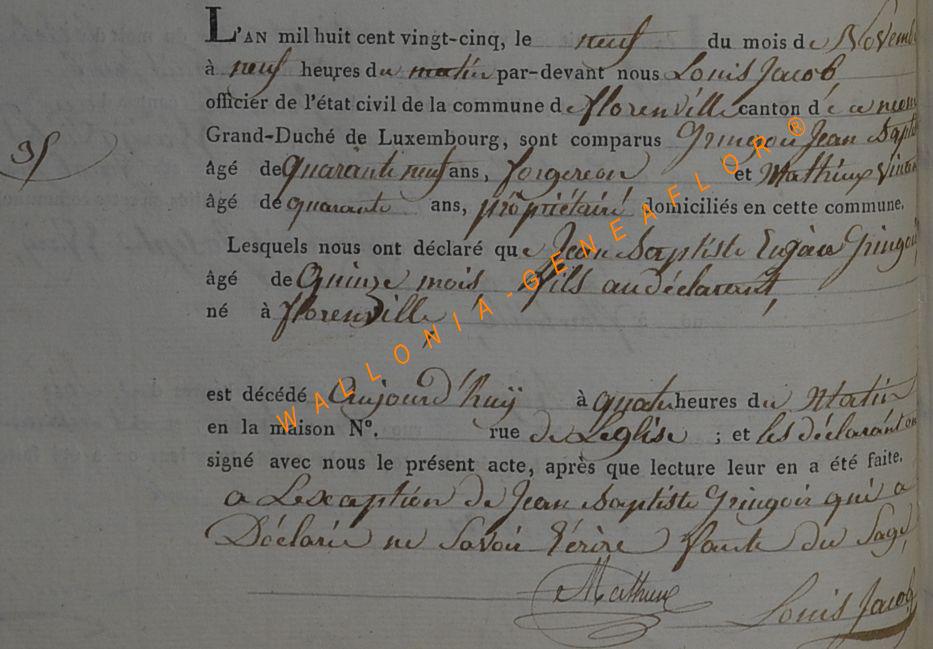 L'AN mil huit cent vingt-cinq, le neuf du mois de Novemb
à neuf heures du matin par-devant nous Louis Jacob
officier de l'état civil de la commune de florenville canton d
Grand-Duché de Luxembourg, sont comparus Gringoir Jean Bapti
35
âgé de quarante neuf ans, forgeron et Mathieux
âgé de quarante ans, propriétaire domiciliés en cette commune.
Lesquels nous ont déclaré que Jean Baptiste Eugène Gringoi
âgé de Quinze mois fils au déclarant,
né à florenville
est décédé Aujourd'huÿ à quatre heures du Matin
en la maison N°. rue de Leglise ; et les déclarant on
signé avec nous le présent acte, après que lecture leur en a été faite.
a Lexception de Jean Baptiste Gringoir qui a
Déclaré ne Savoir Écrire faute du Sage
Mathieux
Louis Jacob
WALLONIA-GENEAFLOR®